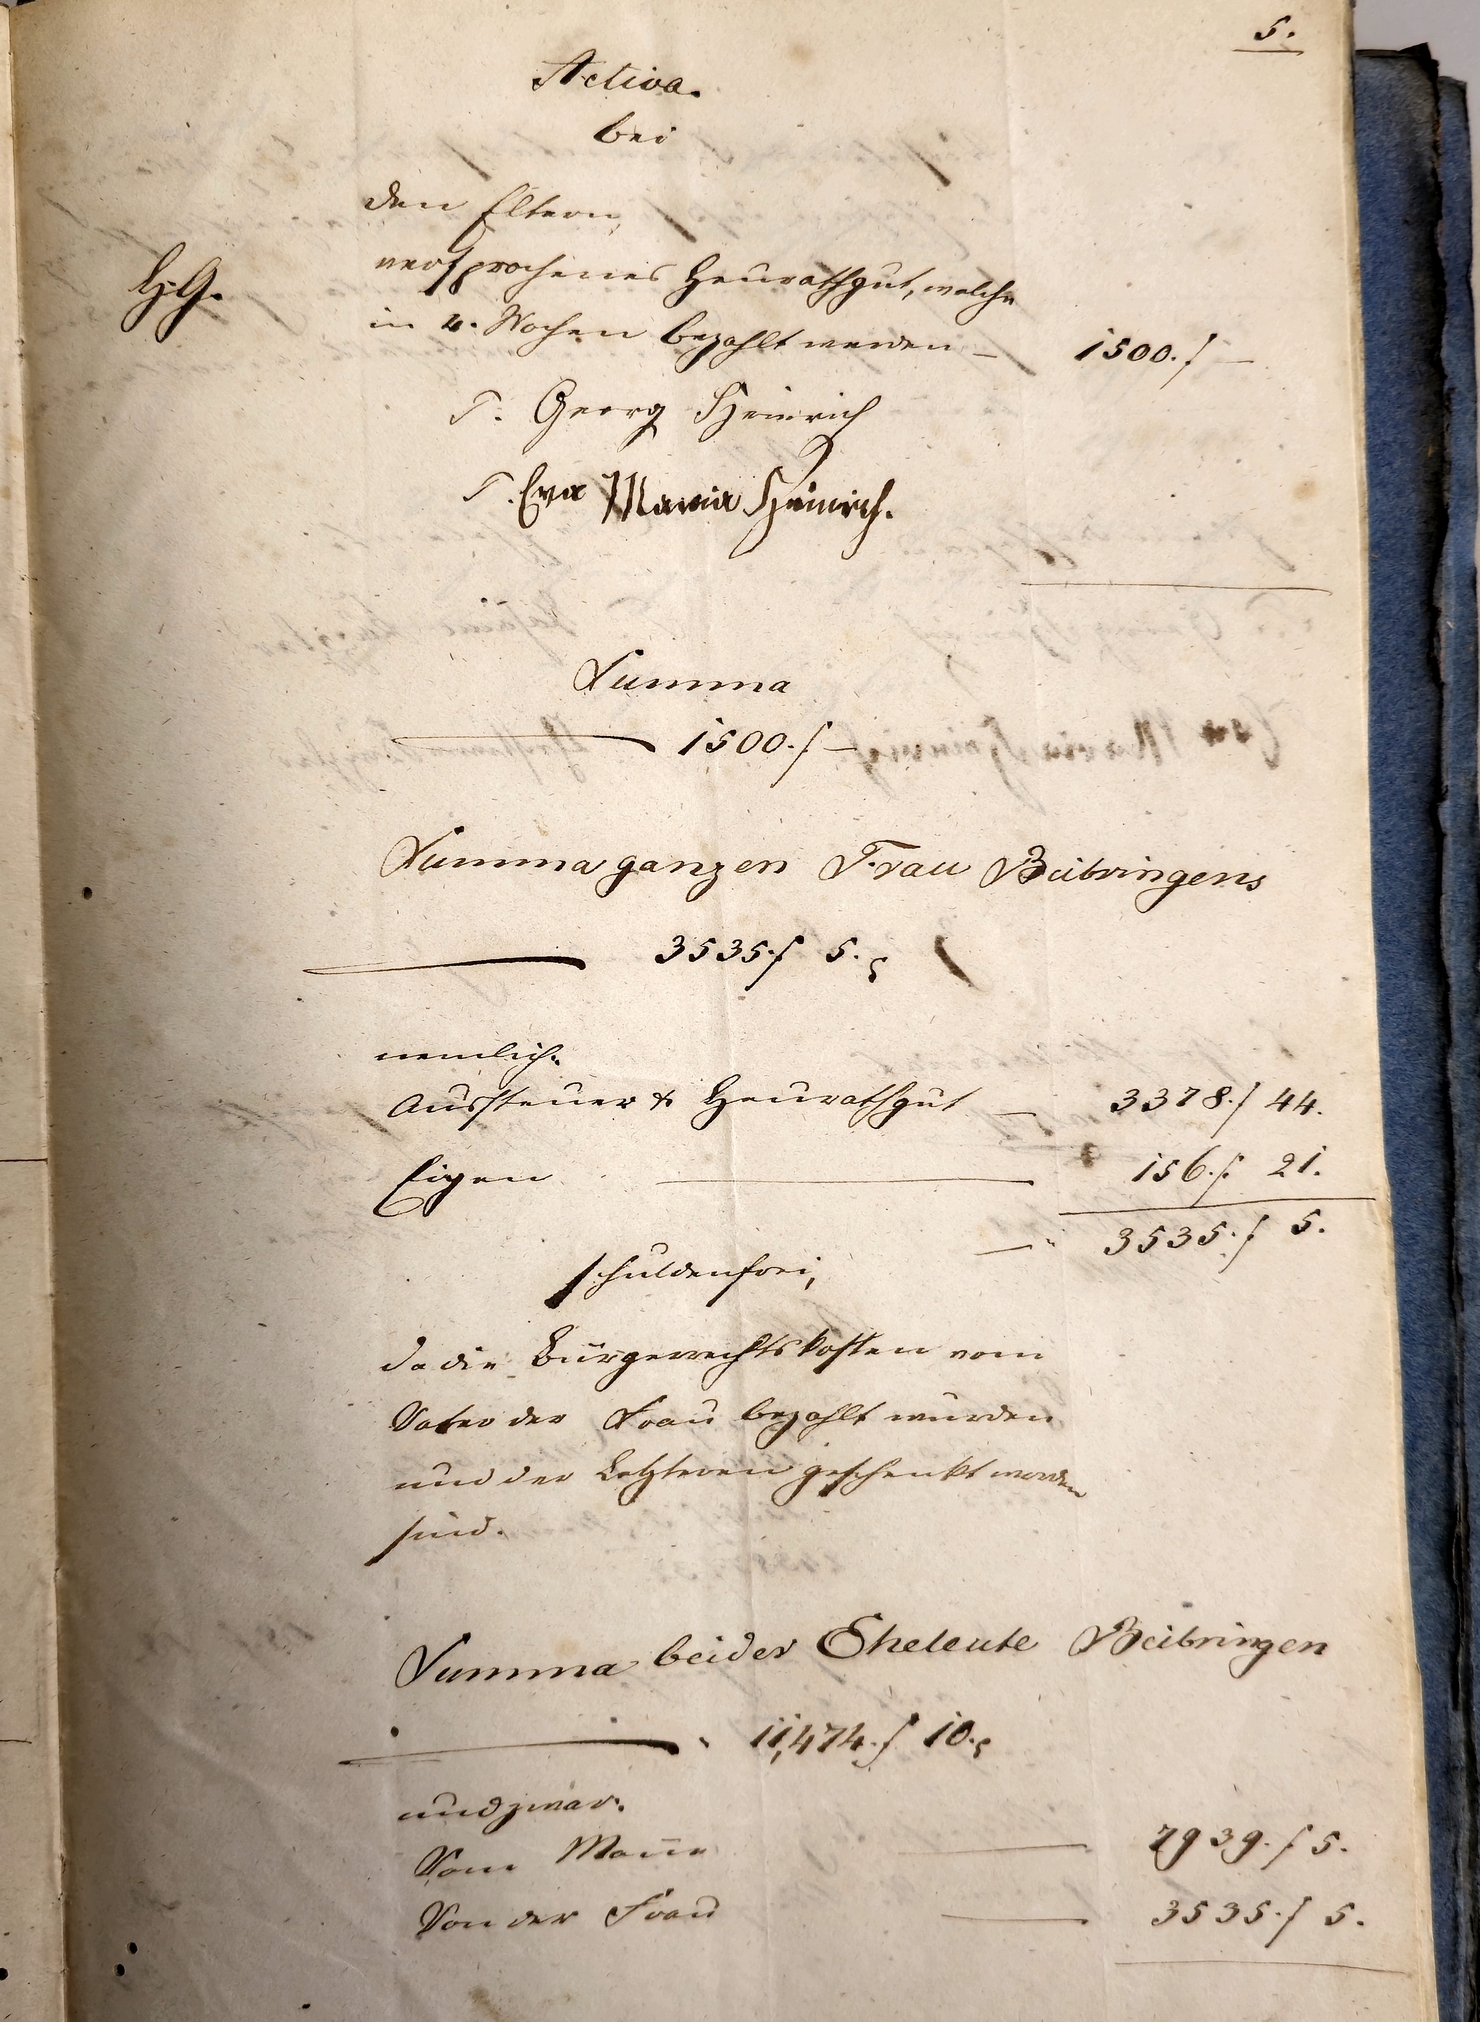 5.
Activa.
bei
den Eltern,
H.G.
versprochenes Heurathgut, welche
in 4. Wochen bezahlt werden — 1500.f —
T. Georg Heinrich
T. Eva Maria Heinrich.
Summa
1500.f —
Summa ganzen Frau Beibringens
3535.f 5.
nemlich:
Aussteuer & Heurathgut — 3378.f 44.
Eigen — 156.f. 21.
— 3535.f 5.
schuldenfrei,
da die Bürgerrechtskosten vom
Vater der Frau bezahlt wurden
und der Letzteren geschenkt worden
sind.
Summa beider Eheleute Beibringen
11,474.f 10.
und zwar:
Vom Mann — 7939.f 5.
Von der Frau — 3535.f 5.